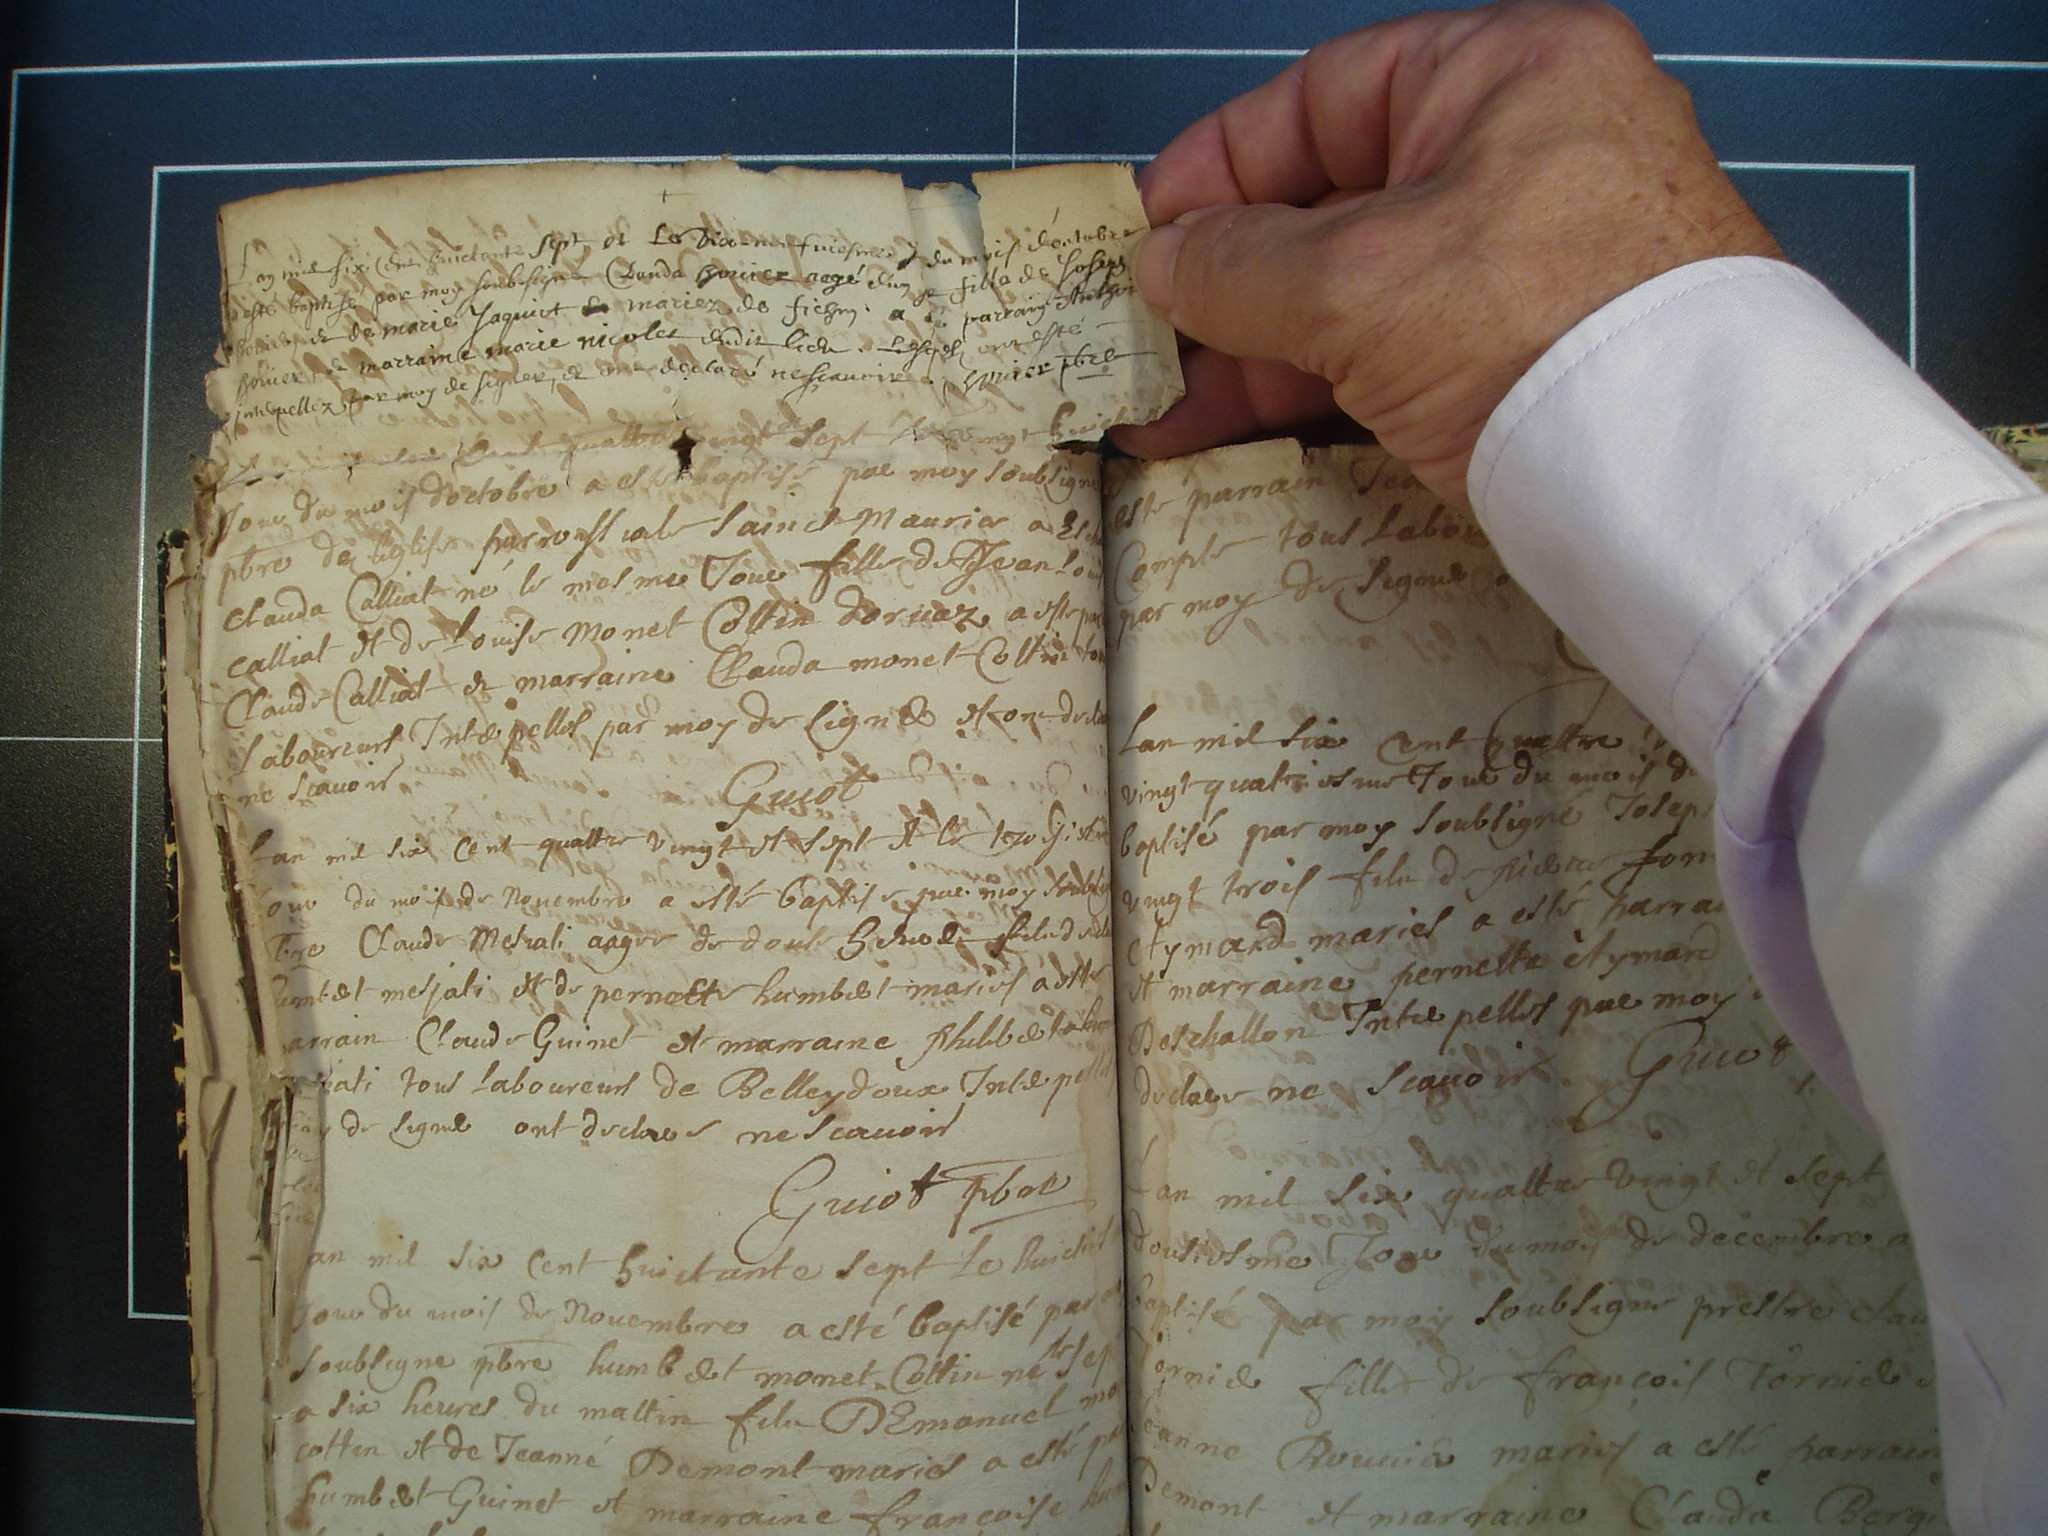 Lan mil six Cens huictante sept et Le Dix neufuiesme du mois d'octobre
esté baptisé par moy soubsigné Clauda aagé d'un fille de Joseph
et de marie Jaquiot mariez de a esté parrain
et marraine marie nicolet dudit lieu Lesquels ont esté
interpellez par moy de signer, et ont déclaré nescauoir pbre
Cent quattre vingt sept vingt huict
Jour du mois doctobre a esté baptisé par moy soubsigne
pbre de leglise parrossiale sainct Maurice a
Clauda Calliat né le mesme Jour fille de Jean Louis
calliat et de Louise monet Collin doruaz a esté par
Claude Calliat et marraine Clauda monet Collin tou
Laboureurs Interpelles par moy de signer et ont decla
ne scauoir
Guiot
Lan mil six Cent quattre vingt et sept et le
Jour du mois de Nouembre a esté baptisé par moy soubsig
bre Claude Mesiati aagee de douse heures fils de
umbert mesiati et de pernette humbert maries a esté
arrain Claude Guinet et marraine philiberta
iati tous Laboureurs de Belleydoux Interpelles
de signer ont declare ne scauoir
Guiot pbre
an mil six Cent huictante sept Le huicti
Jour du mois de Nouembre a esté baptisé par
soubsigne pbre humbert monet Collin né le sep
a six heures du mattin fils D'Emanuel mo
cottin et de Jeanne Demont maries a esté pa
humbert Guinet et marraine françoise hum
este parrain Jea
Comple tous Labou
par moy de signer o
Lan mil six Cent quattre
vingt quatriesme Jour du mois de
baptisé par moy soubsigne Joseph
vingt trois fils de pierre fon
Eymard maries a esté parra
et marraine pernette Eymard
Deschallon Interpelles par moy
declare ne scauoir Guiot
Lan mil six quattre vingt et sept
dousiesme Jour du moy de decembre a
baptisé par moy soubsigne prestre Clau
Tornier fille de françois Tornier
Jeanne Bouuier maries a esté parrain
Demont et marraine Clauda Berg